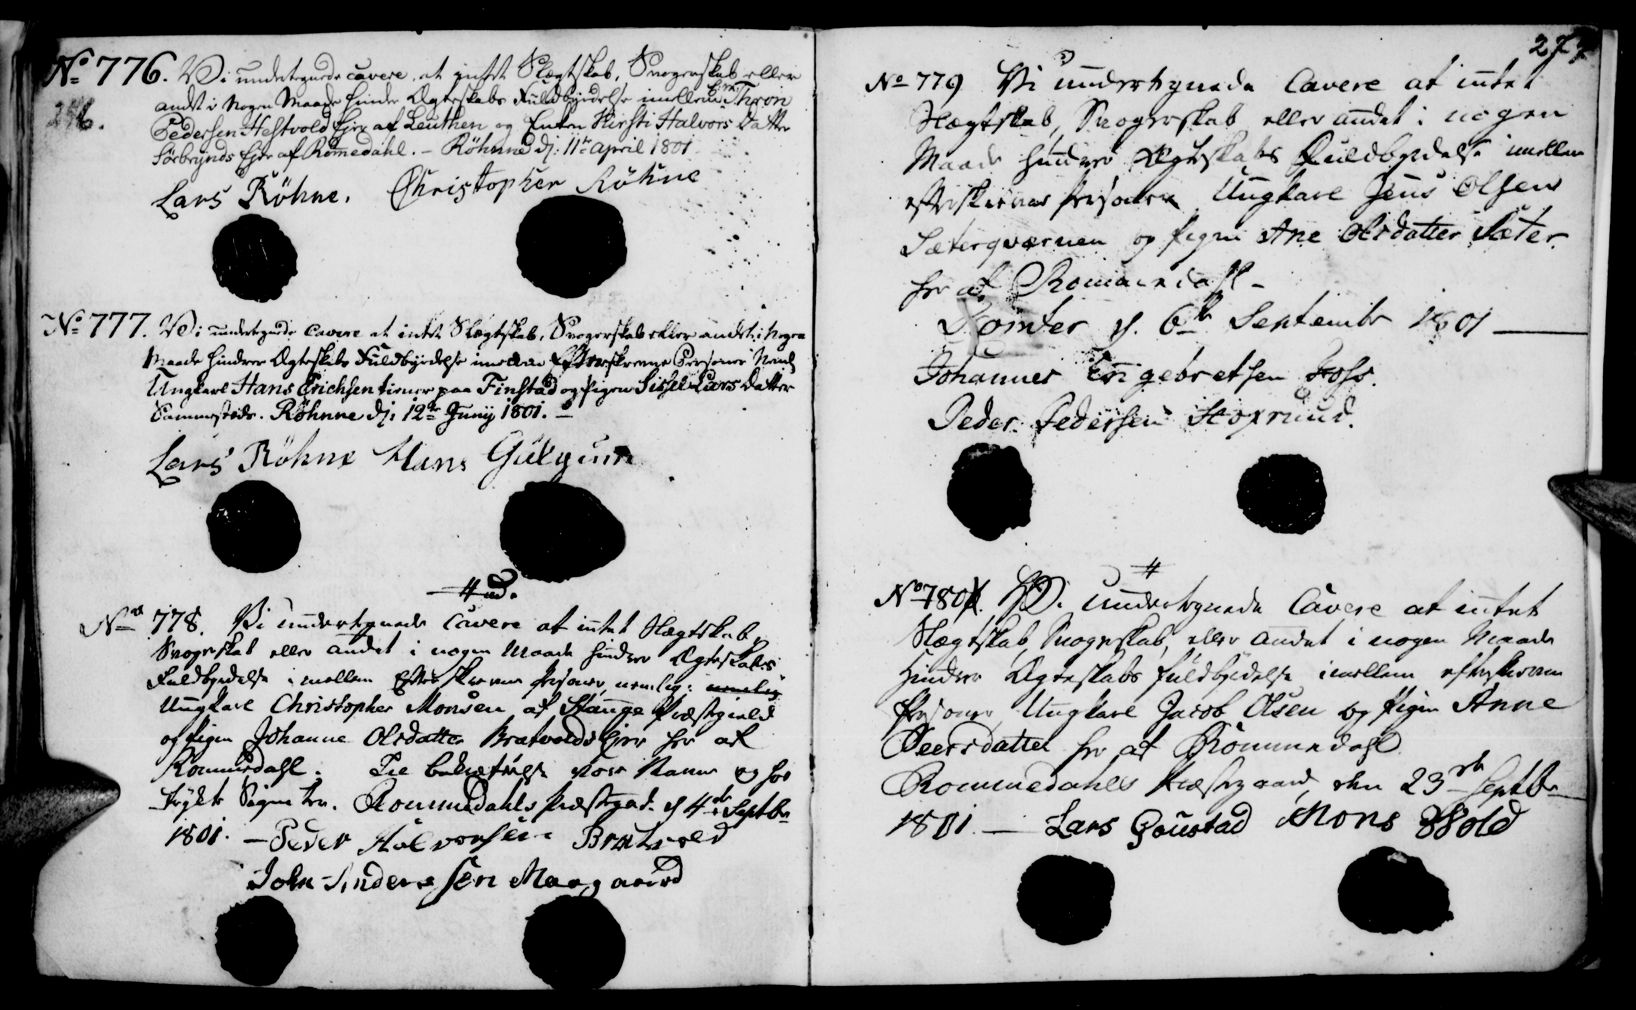 No 776. Vi undertegnede Cavere, at intet Slægtskab, Svogerskab eller
andet i Nogen Maade hinder Ægteskabs Fuldbyrdelse imellem Em: Thron
Pedersen Hestvold her af Leuthen og Enken Kirsti Halvors Datter
her af Rommedahl. - Röhnne dj: 11te April 1801
Lars Röhne. Christopher Röhne
No 777. Vi undertegnede Cavere at intet Slægtskab, Svogerskab eller andet i Nogen
Maade hindrer Ægteskabs Fuldbyrdelse imellem Efterskrevne Personer Neml
Ungkarl Hans Erichsen tiener paa Finstad og Pigen Sissel Lars Datter
Sammesteds. Röhnne dj: 12te Junij 1801.
Lars Röhne Hans Gulgum
No 778. Vi undertegnede Cavere at intet Slægtskab,
Svogerskab eller andet i nogen Maade hindrer Ægteskabs
Fuldbyrdelse imellem Efterskrevne Personer, nemlig: nemlig
Ungkarl Christopher Monsen af Stange Præstegield
og Pigen Johanne Olsdatter Bratvolds Eyer her af
Rommedahl. Til bekræftelse vore Navne og hos
trykte Signeter. Rommedahls Præstegrd. d 4de Septbr
1801. - Peder Halvorsen Bratvold
John Andersen Maagaard
277
No 779 Vi undertegnede Cavere at intet
Slægtskab, Svogerskab eller andet i nogen
Maade hindrer Ægteskabs Fuldbyrdelse imellem
efterskrevne Personer Ungkarl Jens Olsen
Sæterqværnen og Pigen Ane Olsdatter Sæter
her af Rommedahl -
d. 6te September 1801
Johannes Engebretsen Foss.
Peder Pedersen
No 780. Vi undertegnede Cavere at intet
Slægtskab, Svogerskab, eller andet i nogen Maade
Hindrer Ægteskabs fuldbyrdelse imellem efterskrevne
Personer, Ungkarl Jacob Olsen og Pigen Anne
Peersdatter her af Rommedahl
Rommedahls Præstegaard, den 23de Septbr
1801 - Lars Goustad Mons Wold